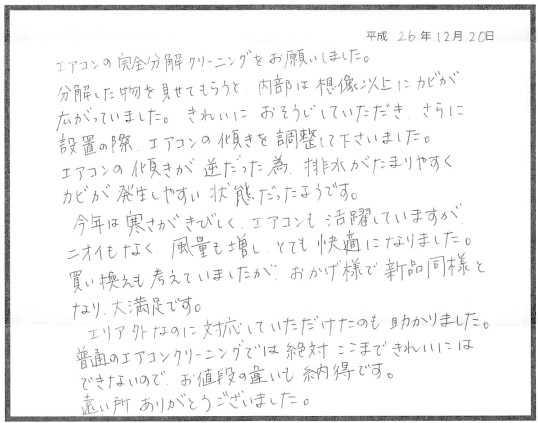 平成 26年12月20日
エアコンの完全分解クリーニングをお願いしました。
分解した物を見せてもらうと、内部は想像以上にカビが
広がっていました。きれいに おそうじしていただき、さらに
設置の際、エアコンの傾きを調整して下さいました。
エアコンの傾きが逆だった為、排水がたまりやすく
カビが発生しやすい状態だったようです。
今年は寒さがきびしく、エアコンも活躍していますが、
ニオイもなく、風量も増し、とても快適になりました。
買い換えも考えていましたが、おかげ様で新品同様と
なり、大満足です。
エリア外なのに対応していただけたのも助かりました。
普通のエアコンクリーニングでは絶対ここまできれいには
できないので、お値段の違いも納得です。
遠い所ありがとうございました。